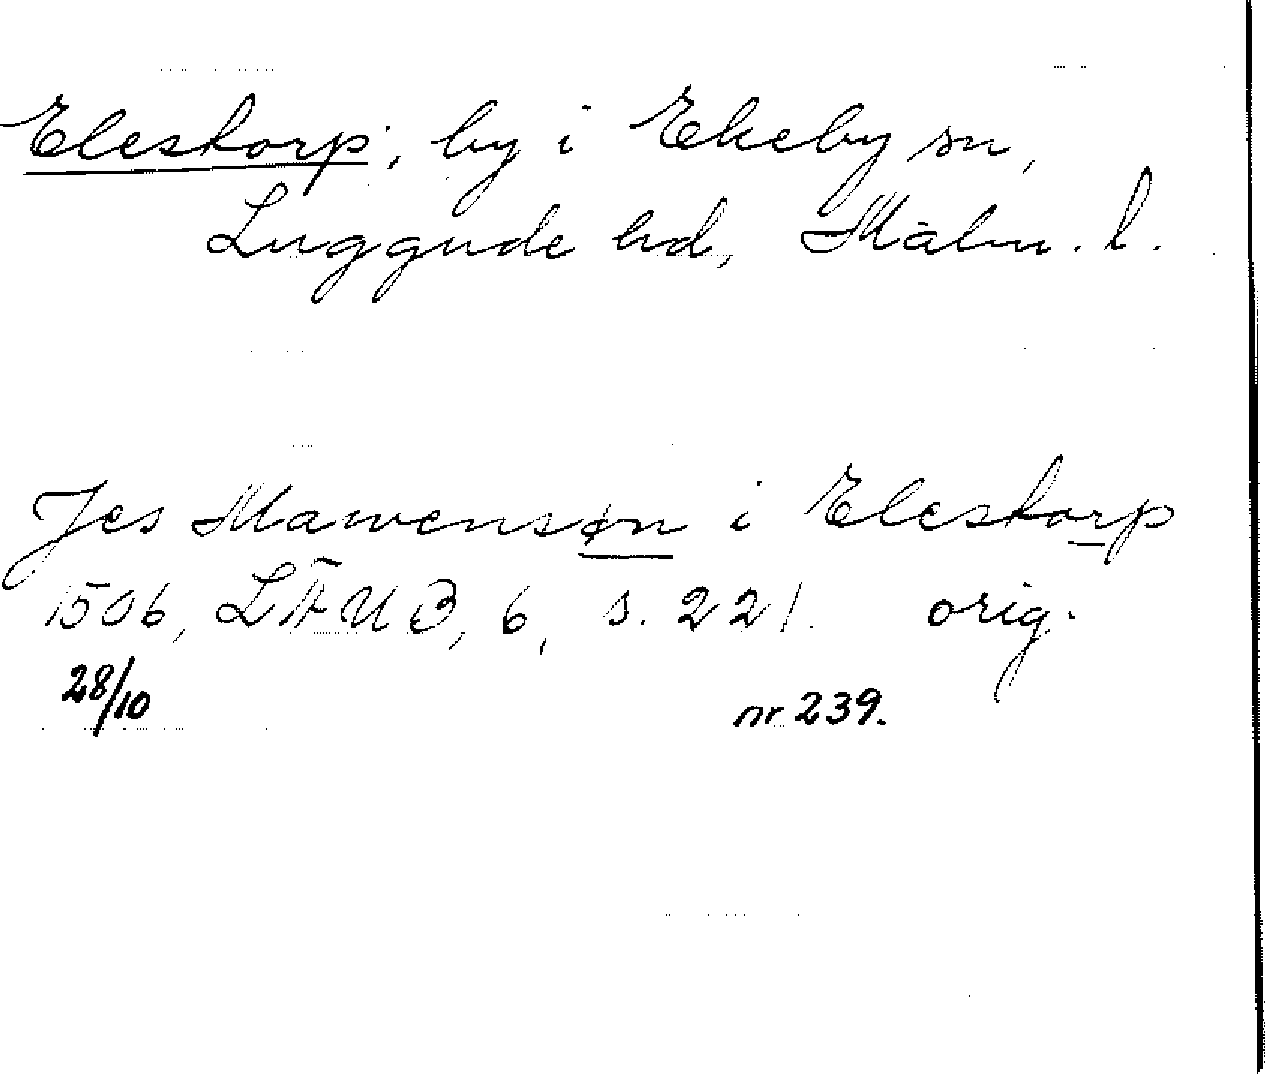 Elestorp, by i Ekeby sn,
Luggude hd, Malm. l.
Jes Mawensøn i Elestorp
1506, LÄUB, 6, s. 221. orig.
28/10 nr 239.